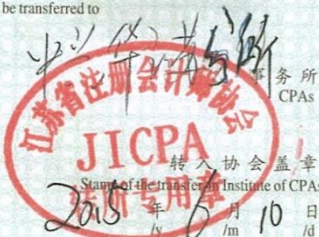 be transferred to
事务所
CPAs
江苏省注册会计师协会
JICPA
转所专用章
转入协会盖章
Stamp of the transfer-in Institute of CPAs
2015年6月10日
/y /m /d